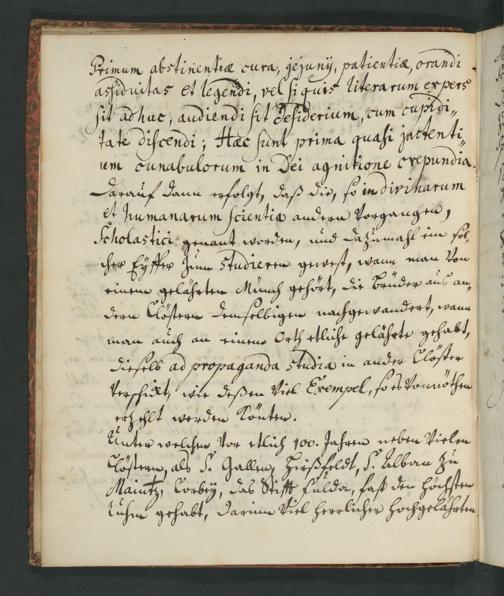 Primum abstinentiæ cura, jejunÿ, patientiæ, orandi
assiduitas et legendi, vel si quis literarum expers
sit adhuc, audiendi sit desiderium, cum cupidi„
tate discendi; Hæc sunt prima quasi jactenti„
um cunabulorum in Dei agnitione crepundia.
Darauf dann erfolgt, daß die, so in divinarum
et humanarum scientia andern vorgangen,
Scholastici genant worden, und dazumahl ein sol„
cher Eÿffer zum studieren gewest, wann man von
einem gelährten Münch gehört, die brüder aus an„
dern Clöstern demselbigen nachgewandert, wann
man auch an einem Orth etliche gelährte gehabt,
dieselb ad propaganda studia in ander Clöster
verschickt, wie deßen viel Exempel, so es vonnöthen
erzehlt werden könten.
Unter welchen vor etlich 100. Jahren neben vielen
Clöstern, als S. Gallen, Hirßfeldt, S. Alban zu
Maintz, Corbeÿ, das Stifft Fulda, fast den höchsten
ruhm gehabt, darinn viel herrlicher hochgelährten